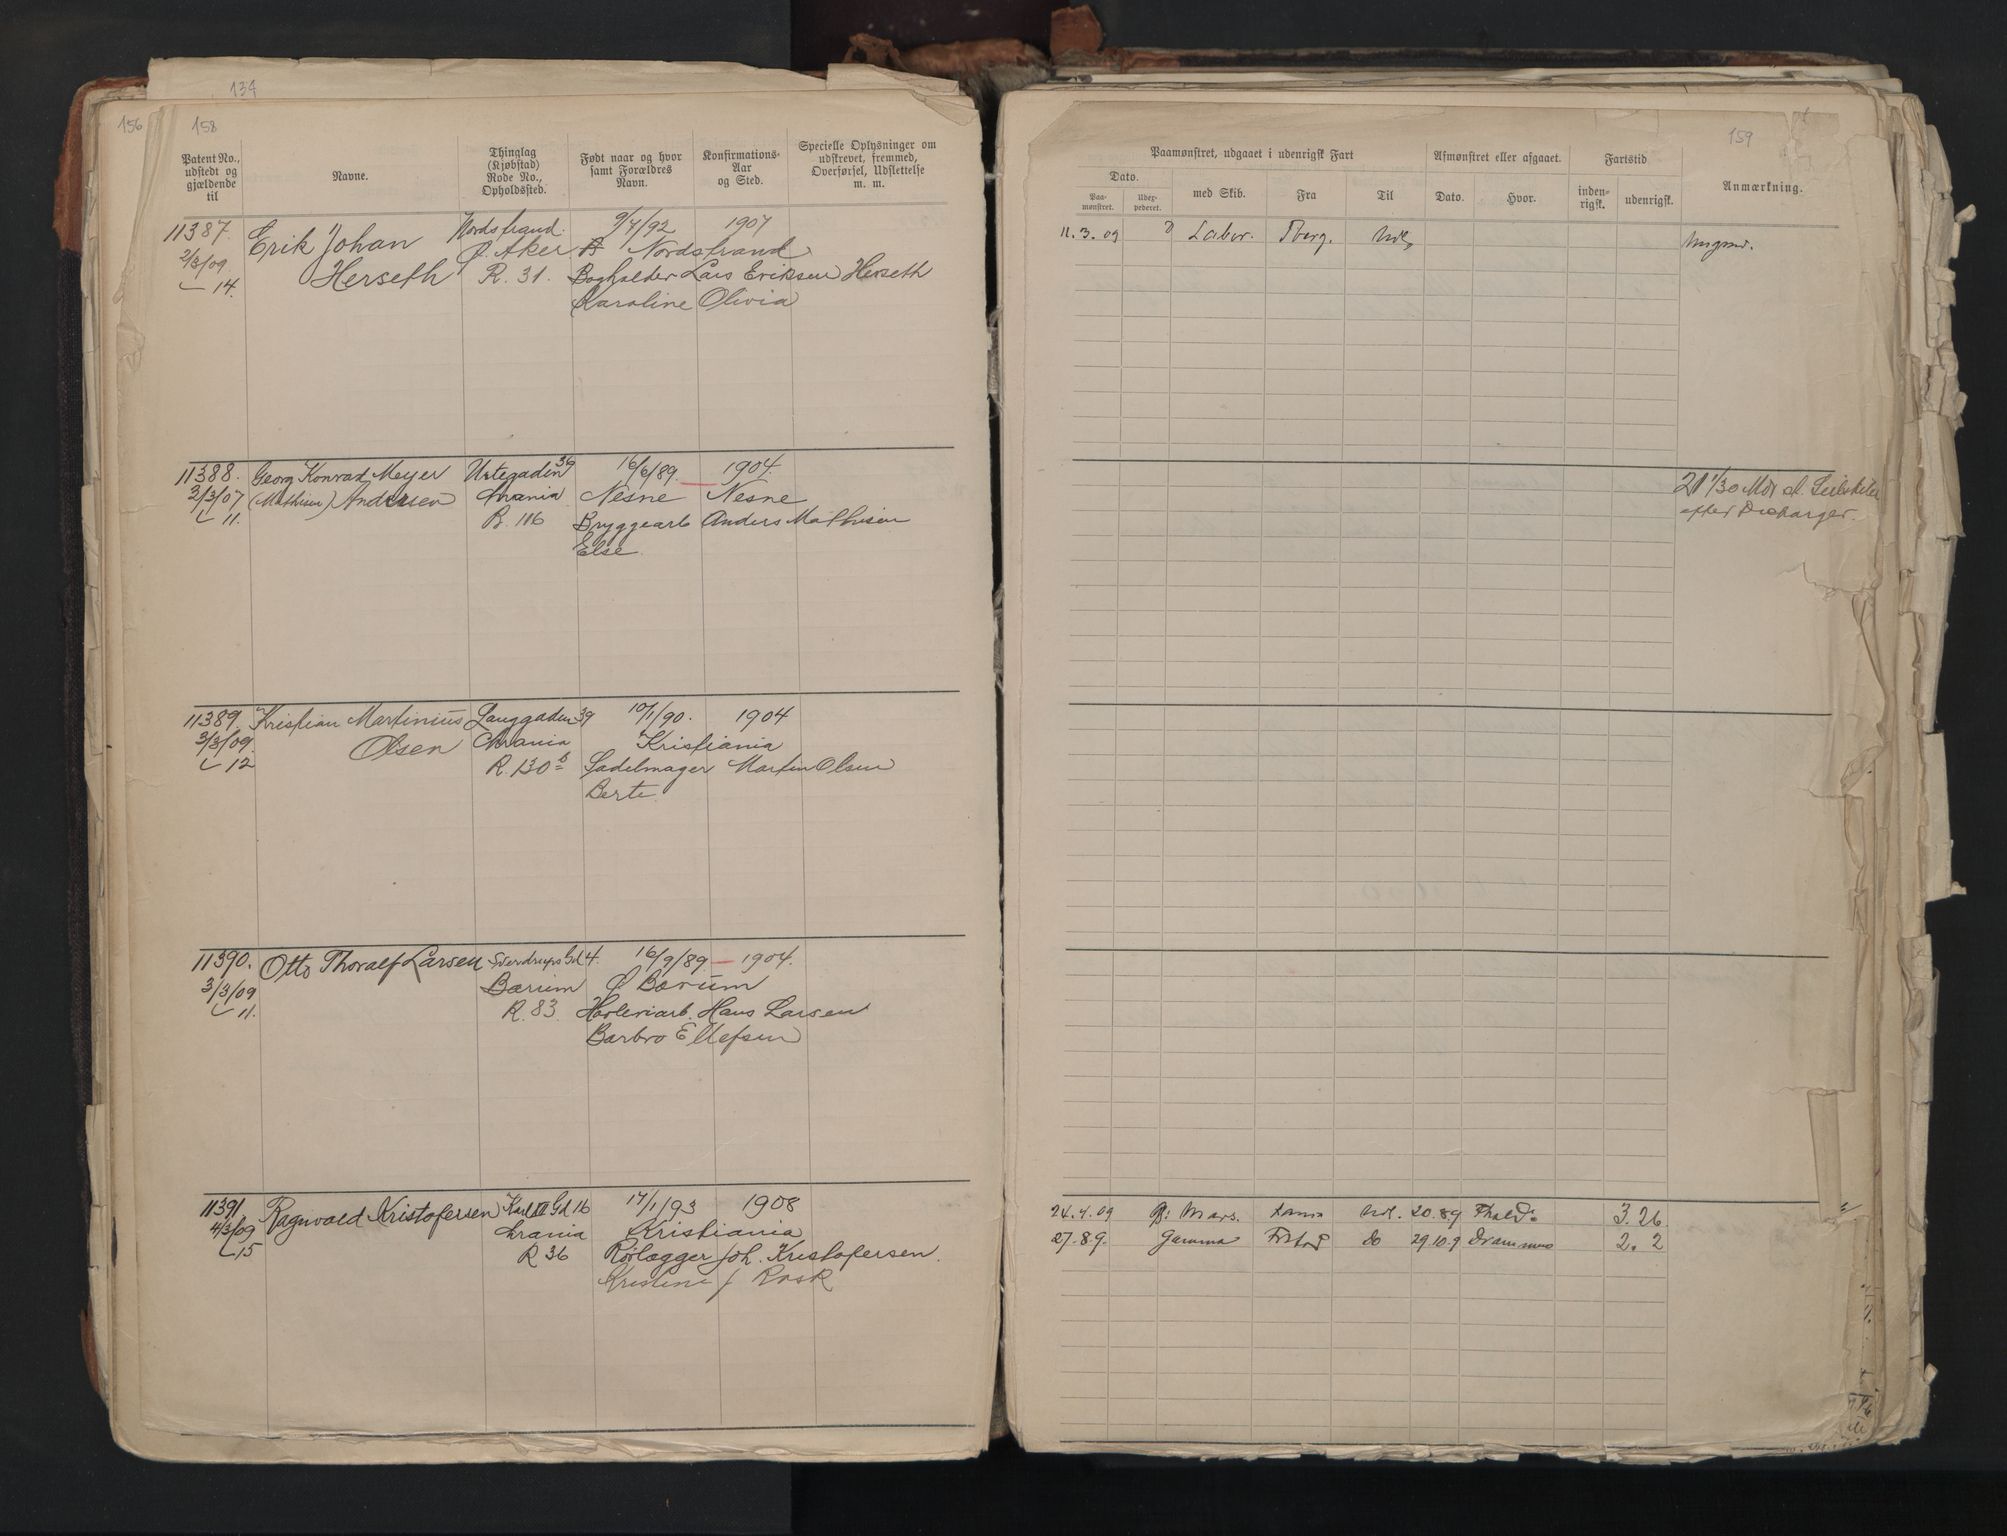 134
156
158
Patent No., udstedt og gjældende til
Navne.
Thinglag (Kjøbstad) Rode No., Opholdssted.
Født naar og hvor samt Forældres Navn.
Konfirmations-Aar og Sted.
Specielle Oplysninger om udskrevet, fremmed, Overførsel, Udslettelse m. m.
11387. Erik Johan Nordstrand. 9/4/92 1907
2/3/09 Ø. Aker Nordstrand
14. Herseth R. 31. Bogholder Lars Eriksen Herseth
Karoline Olivia
11388. Georg Konrad Meyer Urtegaden 39 16/6/89. 1904.
2/3/07 (Mathisen) Andersen Chrania Nesne Nesne
11. R. 116 Bryggearb Anders Mathisen
Else.
11389. Kristian Martinius Langgaden 39 10/1/90. 1904
3/3/09. Olsen Chrania Kristiania
12 R. 130 b Sadelmager Martin Olsen
Berte.
11390. Otto Thoralf Larsen Sverdrups Gd 4. 16/9/89 1904.
3/3/09 Bærum Ø Bærum
11. R. 83. Høvleriarb. Hans Larsen
Barbro Ellefsen
11391 Ragnvald Kristofersen Karl XII Gd 16 17/1/93 1908
4/3/09 Chrania Kristiania
15 R 36 Rørlægger Joh. Kristofersen.
Kristine f Rask
159
Paamønstret, udgaaet i udenrigsk Fart
Afmønstret eller afgaaet.
Fartstid
Anmærkning.
Dato.
Paa-mønstret.
Udex-pederet.
med Skib.
Fra
Til
Dato.
Hvor.
inden-rigsk.
udenrigsk.
11. 3. 09 D Labor. Tberg. Udl. Ungmd.
21 1/30 Mdr
efter Discharger.
24.4.09 Mars. Udl. 20.89 3. 26.
27.8.9. Gamma Frstad Do 29.10.9 Drammen 2. 2